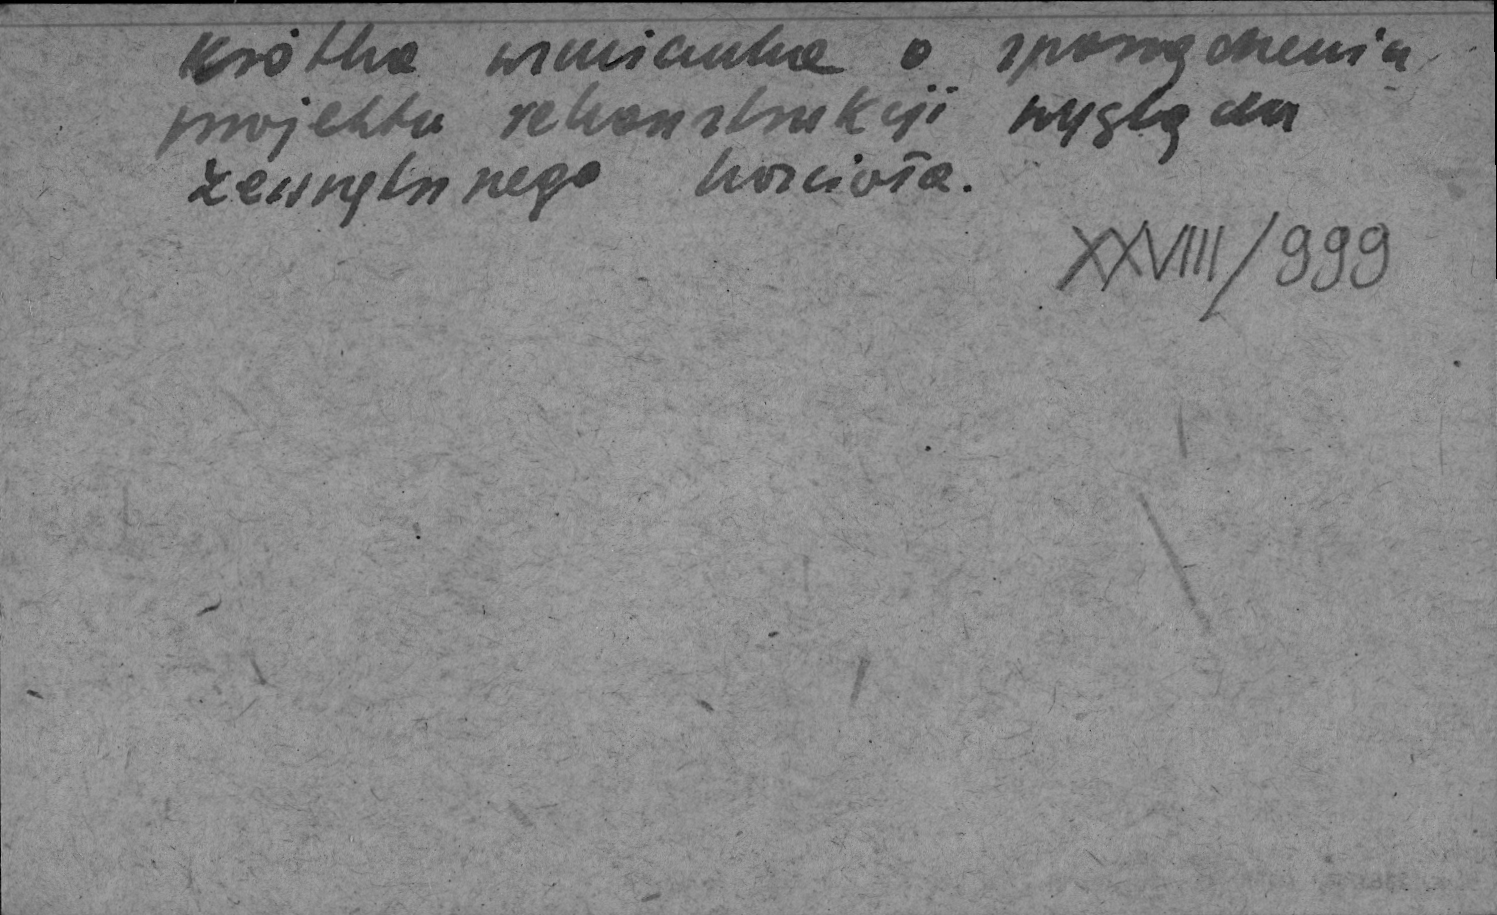 Krótka wzmianka o sporządzeniu
projektu rekonstrukcji wyglądu
zewnętrznego kościoła.
XXVIII/999